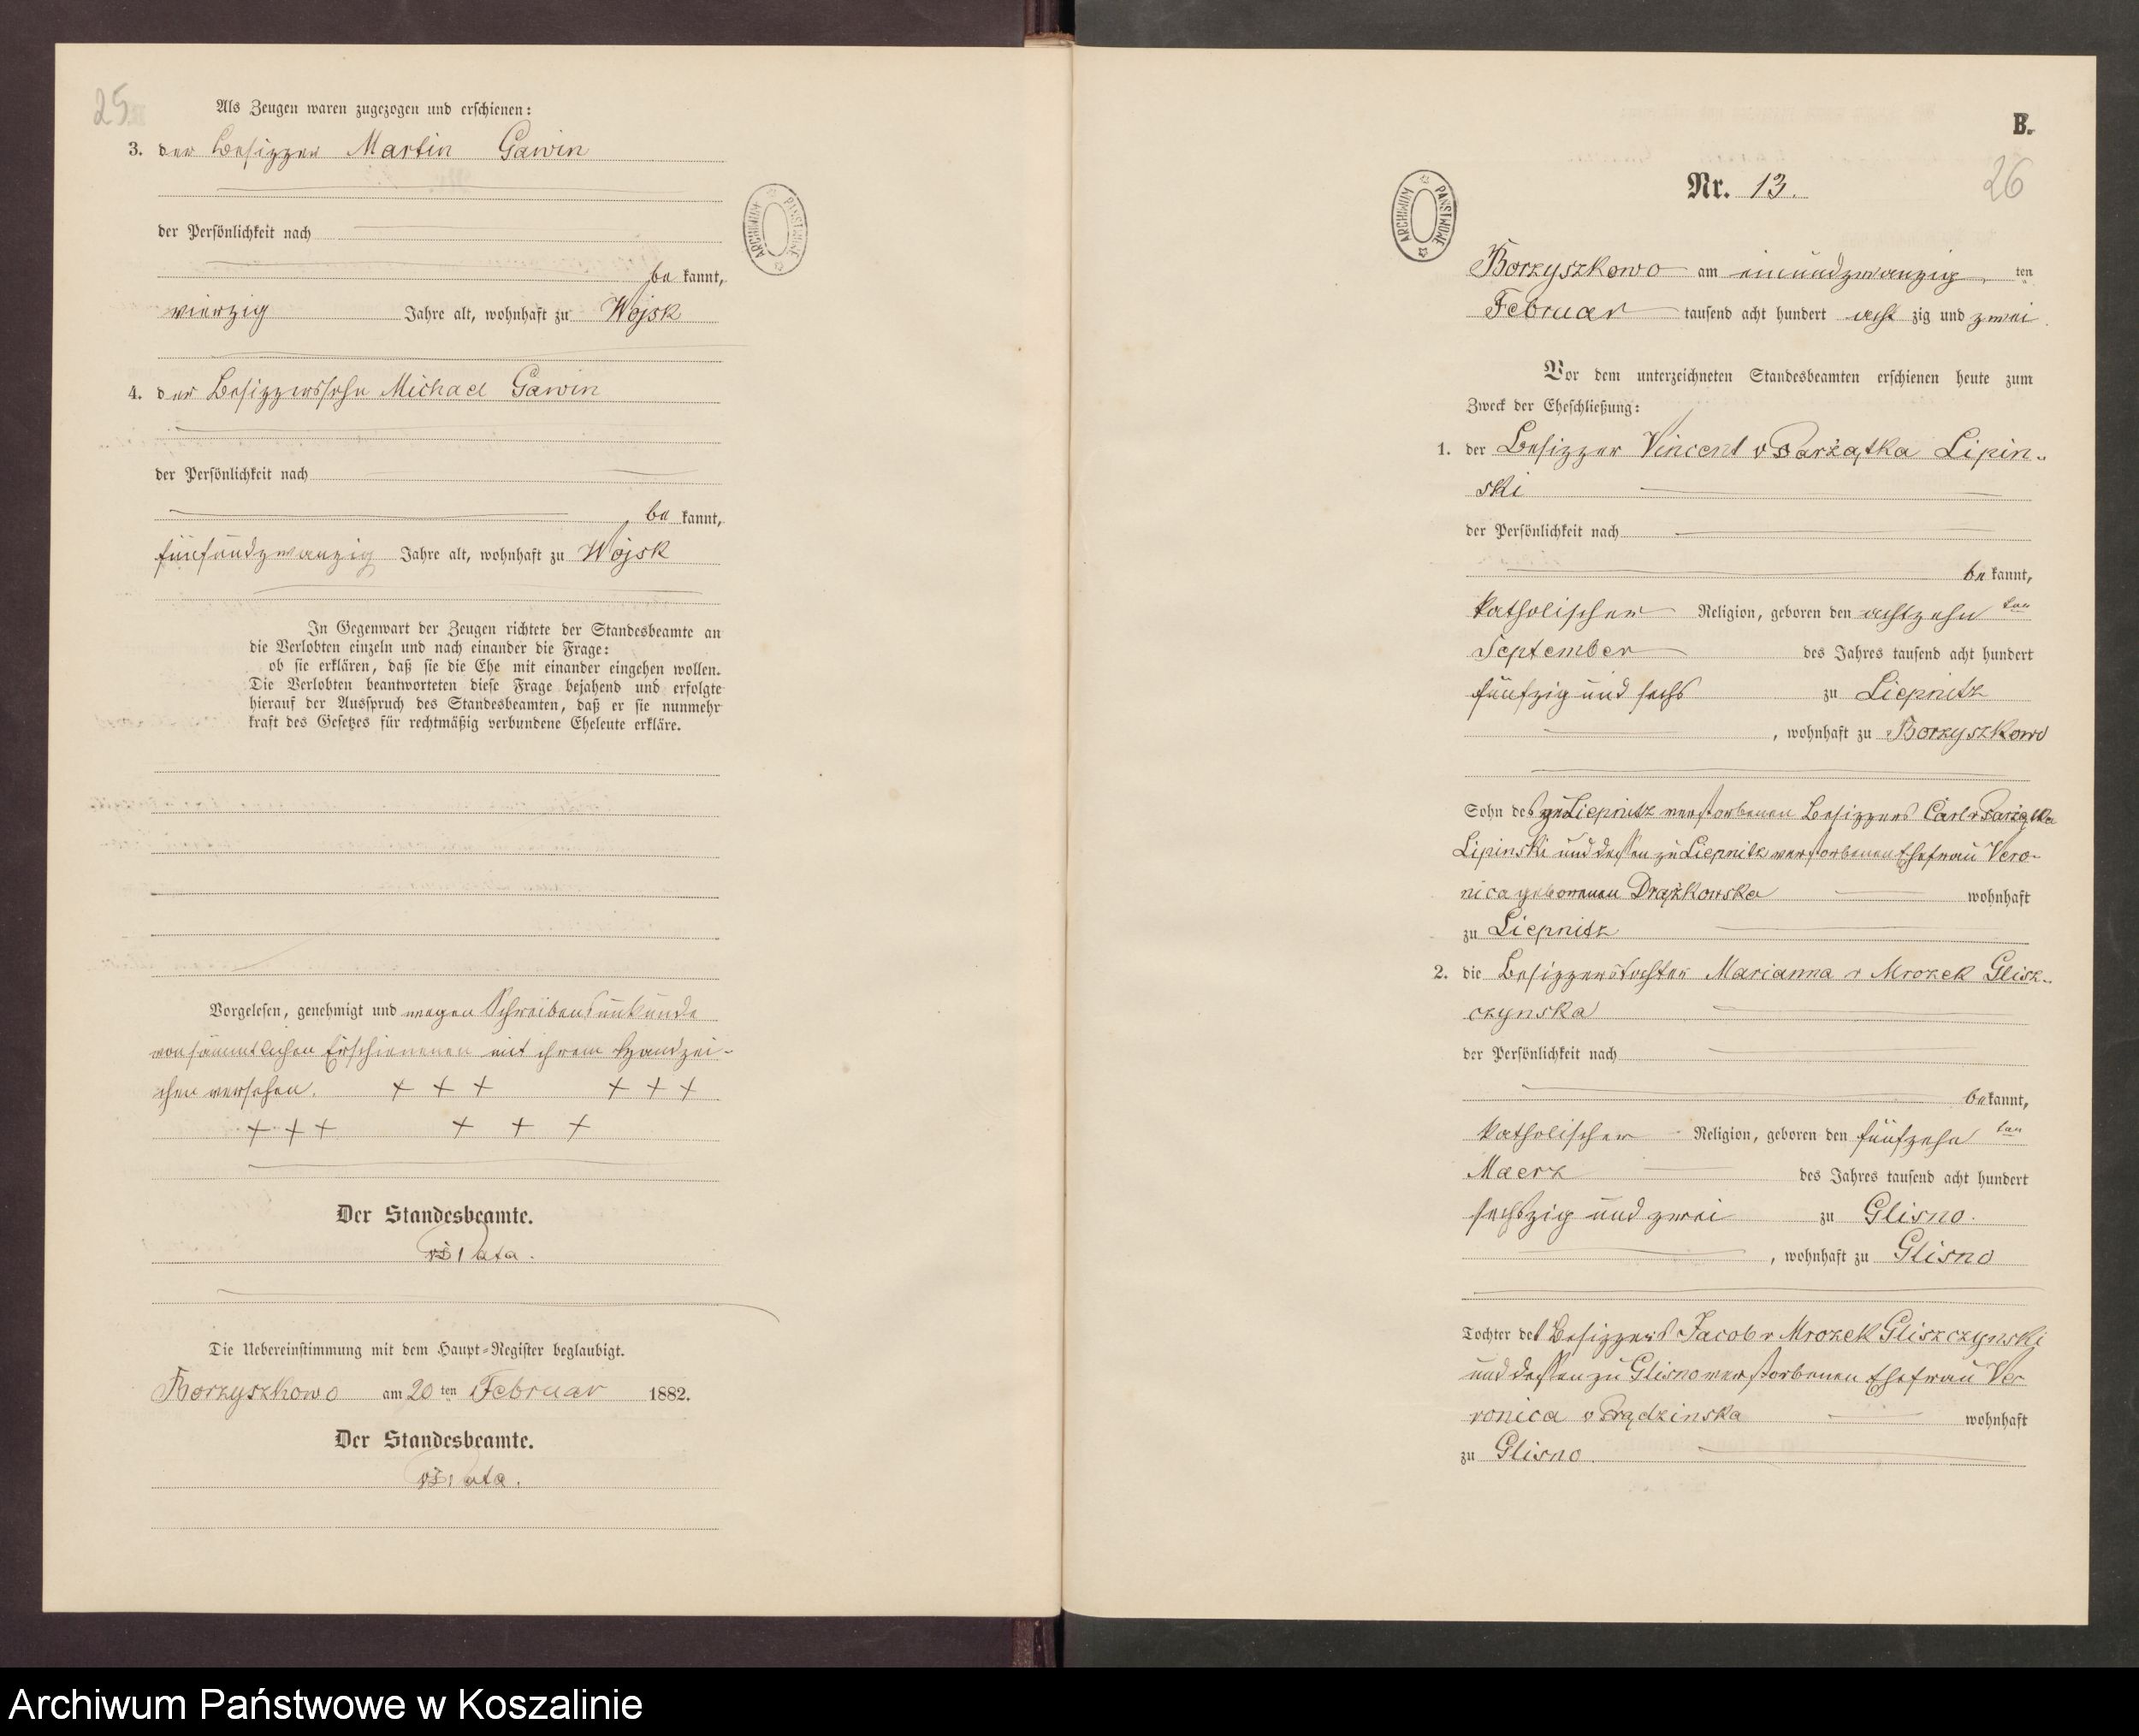 25
Als Zeugen waren zugezogen und erschienen:
3. der Besitzer Martin Gawin
der Persönlichkeit nach
be kannt,
vierzig Jahre alt, wohnhaft zu Wojsk
4. der Besitzerssohn Michael Gawin
der Persönlichkeit nach
be kannt,
fünfundzwanzig Jahre alt, wohnhaft zu Wojsk
In Gegenwart der Zeugen richtete der Standesbeamte an
die Verlobten einzeln und nach einander die Frage:
ob sie erklären, daß sie die Ehe mit einander eingehen wollen.
Die Verlobten beantworteten diese Frage bejahend und erfolgte
hierauf der Ausspruch des Standesbeamten, daß er sie nunmehr
kraft des Gesetzes für rechtmäßig verbundene Eheleute erkläre.
Vorgelesen, genehmigt und wegen Schreibensunkunde
von sämmtlichen Erschienenen mit ihrem Handzei-
chen versehen. + + + + + +
+ + + + + +
Der Standesbeamte.
Die Uebereinstimmung mit dem Haupt-Register beglaubigt.
Borzyszkowo am 20 ten Februar 1882.
Der Standesbeamte.
ARCHIWUM PAŃSTWOWE
B.
26
ARCHIWUM PAŃSTWOWE
Nr. 13.
Borzyszkowo am einundzwanzig ten
Februar tausend acht hundert acht zig und zwei
Vor dem unterzeichneten Standesbeamten erschienen heute zum
Zweck der Eheschließung:
1. der Besitzer Vincent v Parzątka Lipin-
ski
der Persönlichkeit nach
be kannt,
katholischer Religion, geboren den achtzehn ten
September des Jahres tausend acht hundert
fünfzig und sechs zu Liepnitz
, wohnhaft zu Borzyszkowo
Sohn des zu Liepnitz verstorbenen Besitzers Carl v Parzątka
Lipinski und dessen zu Liepnitz verstorbenen Ehefrau Vero-
nica geborenen Drążkowska wohnhaft
zu Liepnitz
2. die Besitzerstochter Marianna v Mrozek Glisz-
czynska
der Persönlichkeit nach
be kannt,
katholischer Religion, geboren den fünfzehn ten
Maerz des Jahres tausend acht hundert
sechszig und zwei zu Glisno.
, wohnhaft zu Glisno
Tochter des Besitzers Jacob v Mrozek Gliszczynski
und dessen zu Glisno verstorbenen Ehefrau Ve-
ronica v Prądzinska wohnhaft
zu Glisno.
Archiwum Państwowe w Koszalinie